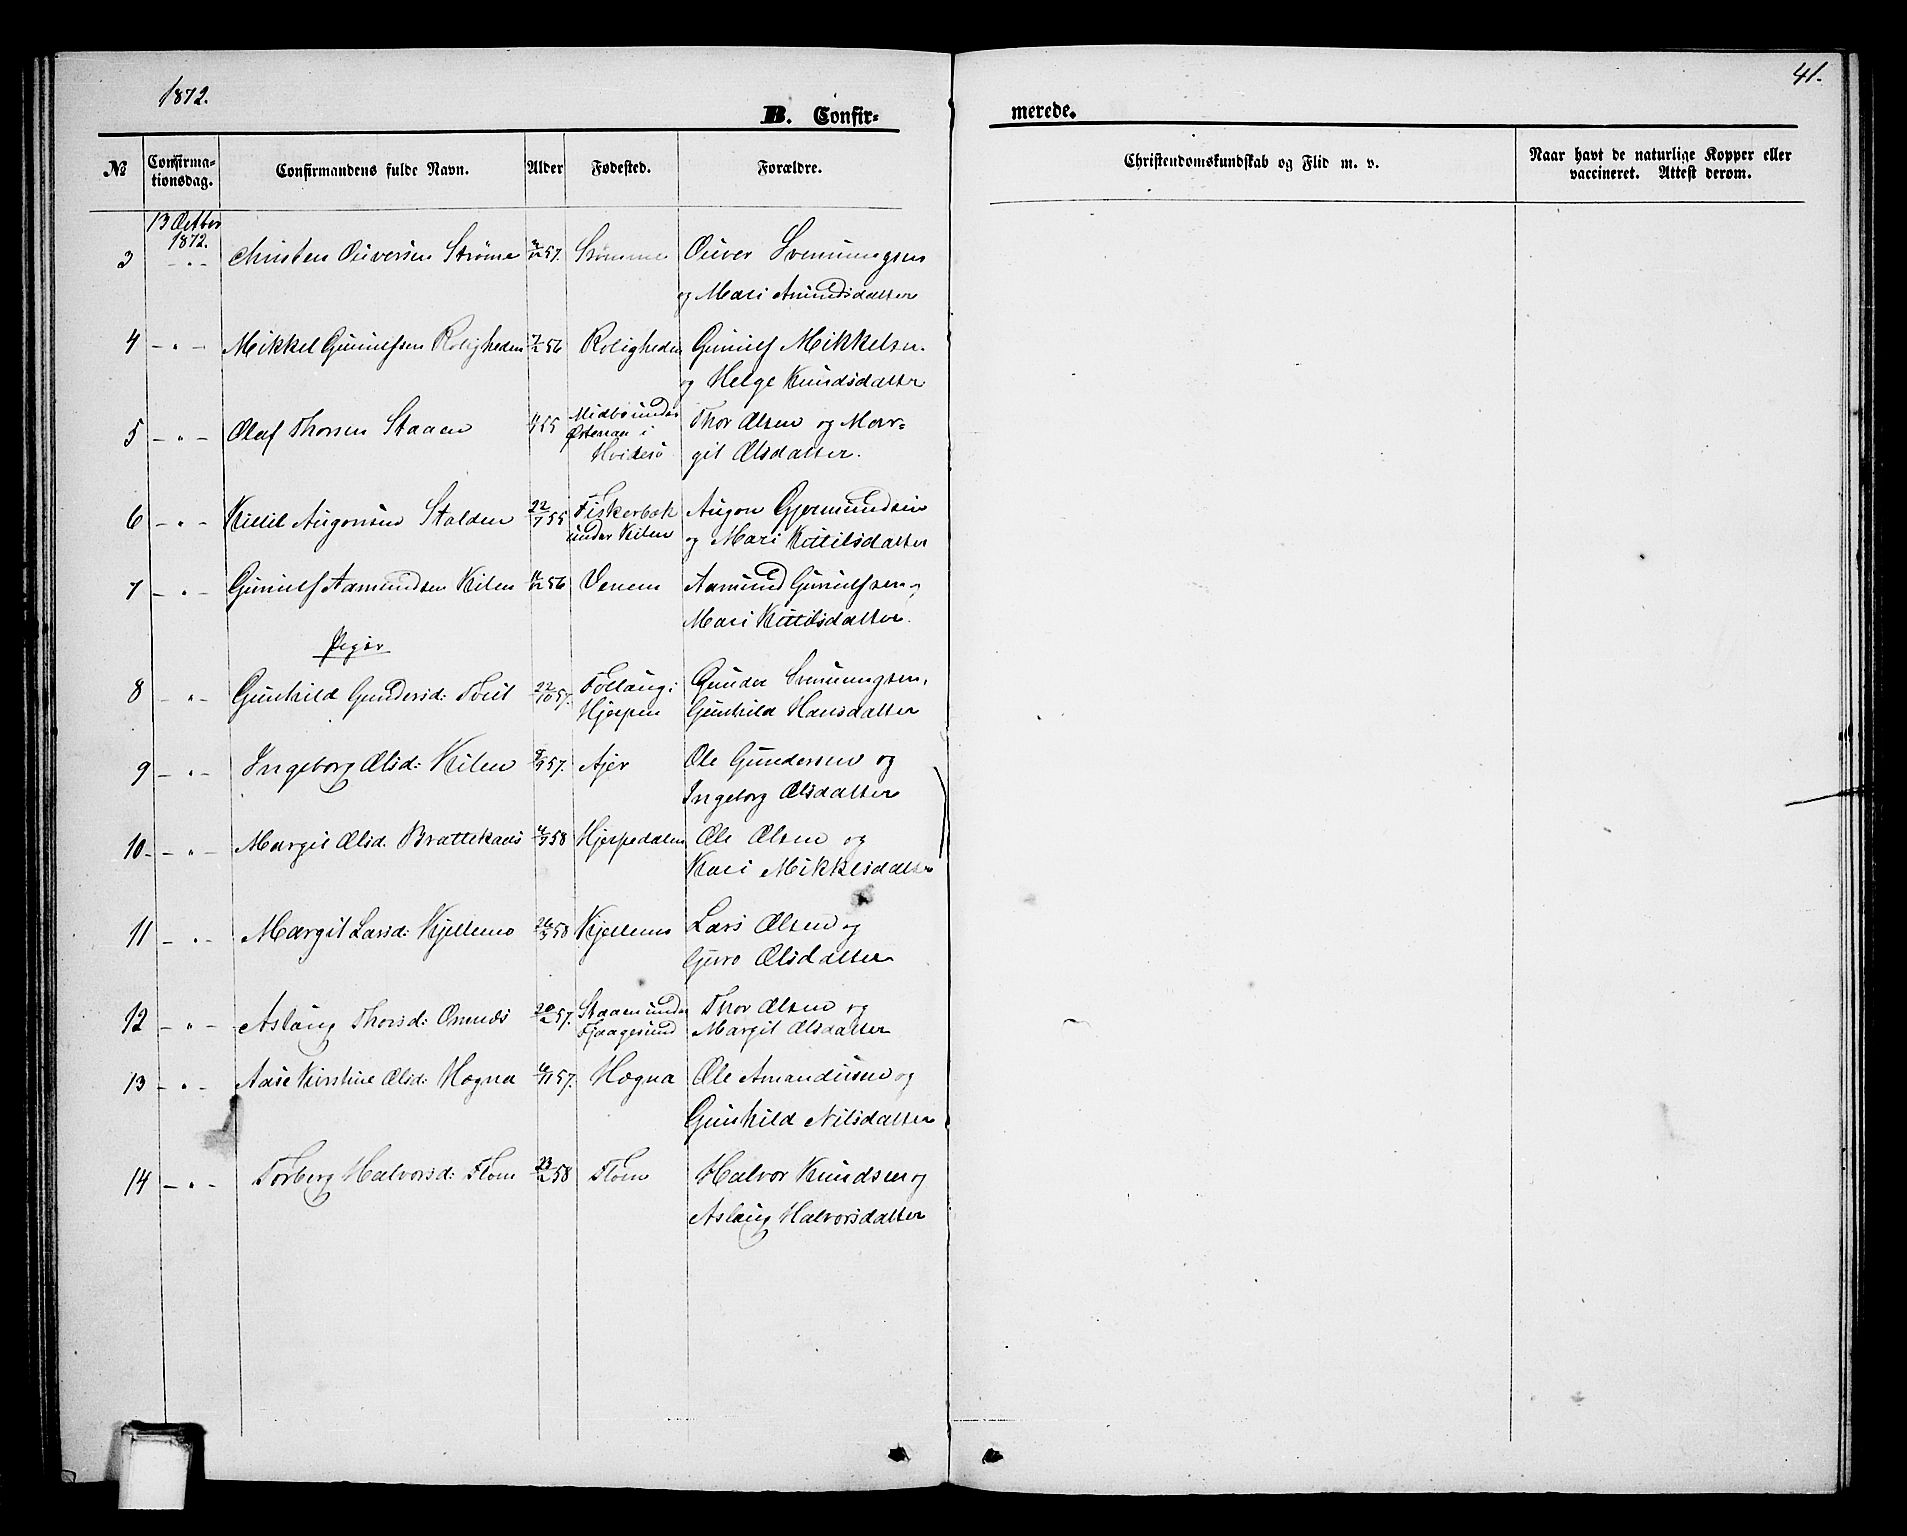 1872.
41.
B. Confir-
merede.
№
Confirma-
tionsdag.
Confirmandens fulde Navn.
Alder
Fødested.
Forældre.
Christendomskundskab og Flid m. v.
Naar havt de naturlige Kopper eller
vaccineret. Attest derom.
13 Octbr
1872.
3 - " - Christen Oliversen Strøme 57. Strømme Oliver Svenningsen
og Mari Amundsdatter
4 - " - Mikkel Gunulfsen Roligheden 56 Roligheden Gunulf Mikkelsen
og Helge Knudsdatter
5 - " - Olaf Thorsen Staaen 55 Midbø under Thor Olsen og Mar-
i
Hvidesø git Olsdatter.
6 - " - Kittil Augonsen Stalden 22/7 55 Fiskerbæk Augon Gjermundsen
under Kilen og Mari Kittilsdatter
7 - " - Gunulf Aamundsen Kilen 56 Venem Aamund Gunulfsen og
Mari Kittilsdatter.
Piger
8 - " - Gunhild Gundersd: Tveit 22/10 57. Follaug i Gunder Svenningsen,
Hjerpen Gunhild Hansdatter
9 - " - Ingeborg Olsd: Kilen 57. Ajer Ole Gundersen og
Ingeborg Olsdatter
10. - " - Margit Olsd. Brattekaas 58 Hjerpedalen Ole Olsen og
Kari Mikkelsdatter
11 - " - Margit Larsd: Kjellemo 58 Kjellemo Lars Olsen og
Guro Olsdatter
12 - " - Aslaug Thorsd: Omnæs 57. Staaen under Thor Olsen og
Fjaagesund Margit Olsdatter
13 - " - Aase Kirstine Olsd: Høgna 57. Høgna Ole Amundsen og
Gunhild Nilsdatter
14 - " - Torberg Halvorsd: Flom 23/2 58 Flom Halvor Knudsen og
Aslaug Halvorsdatter